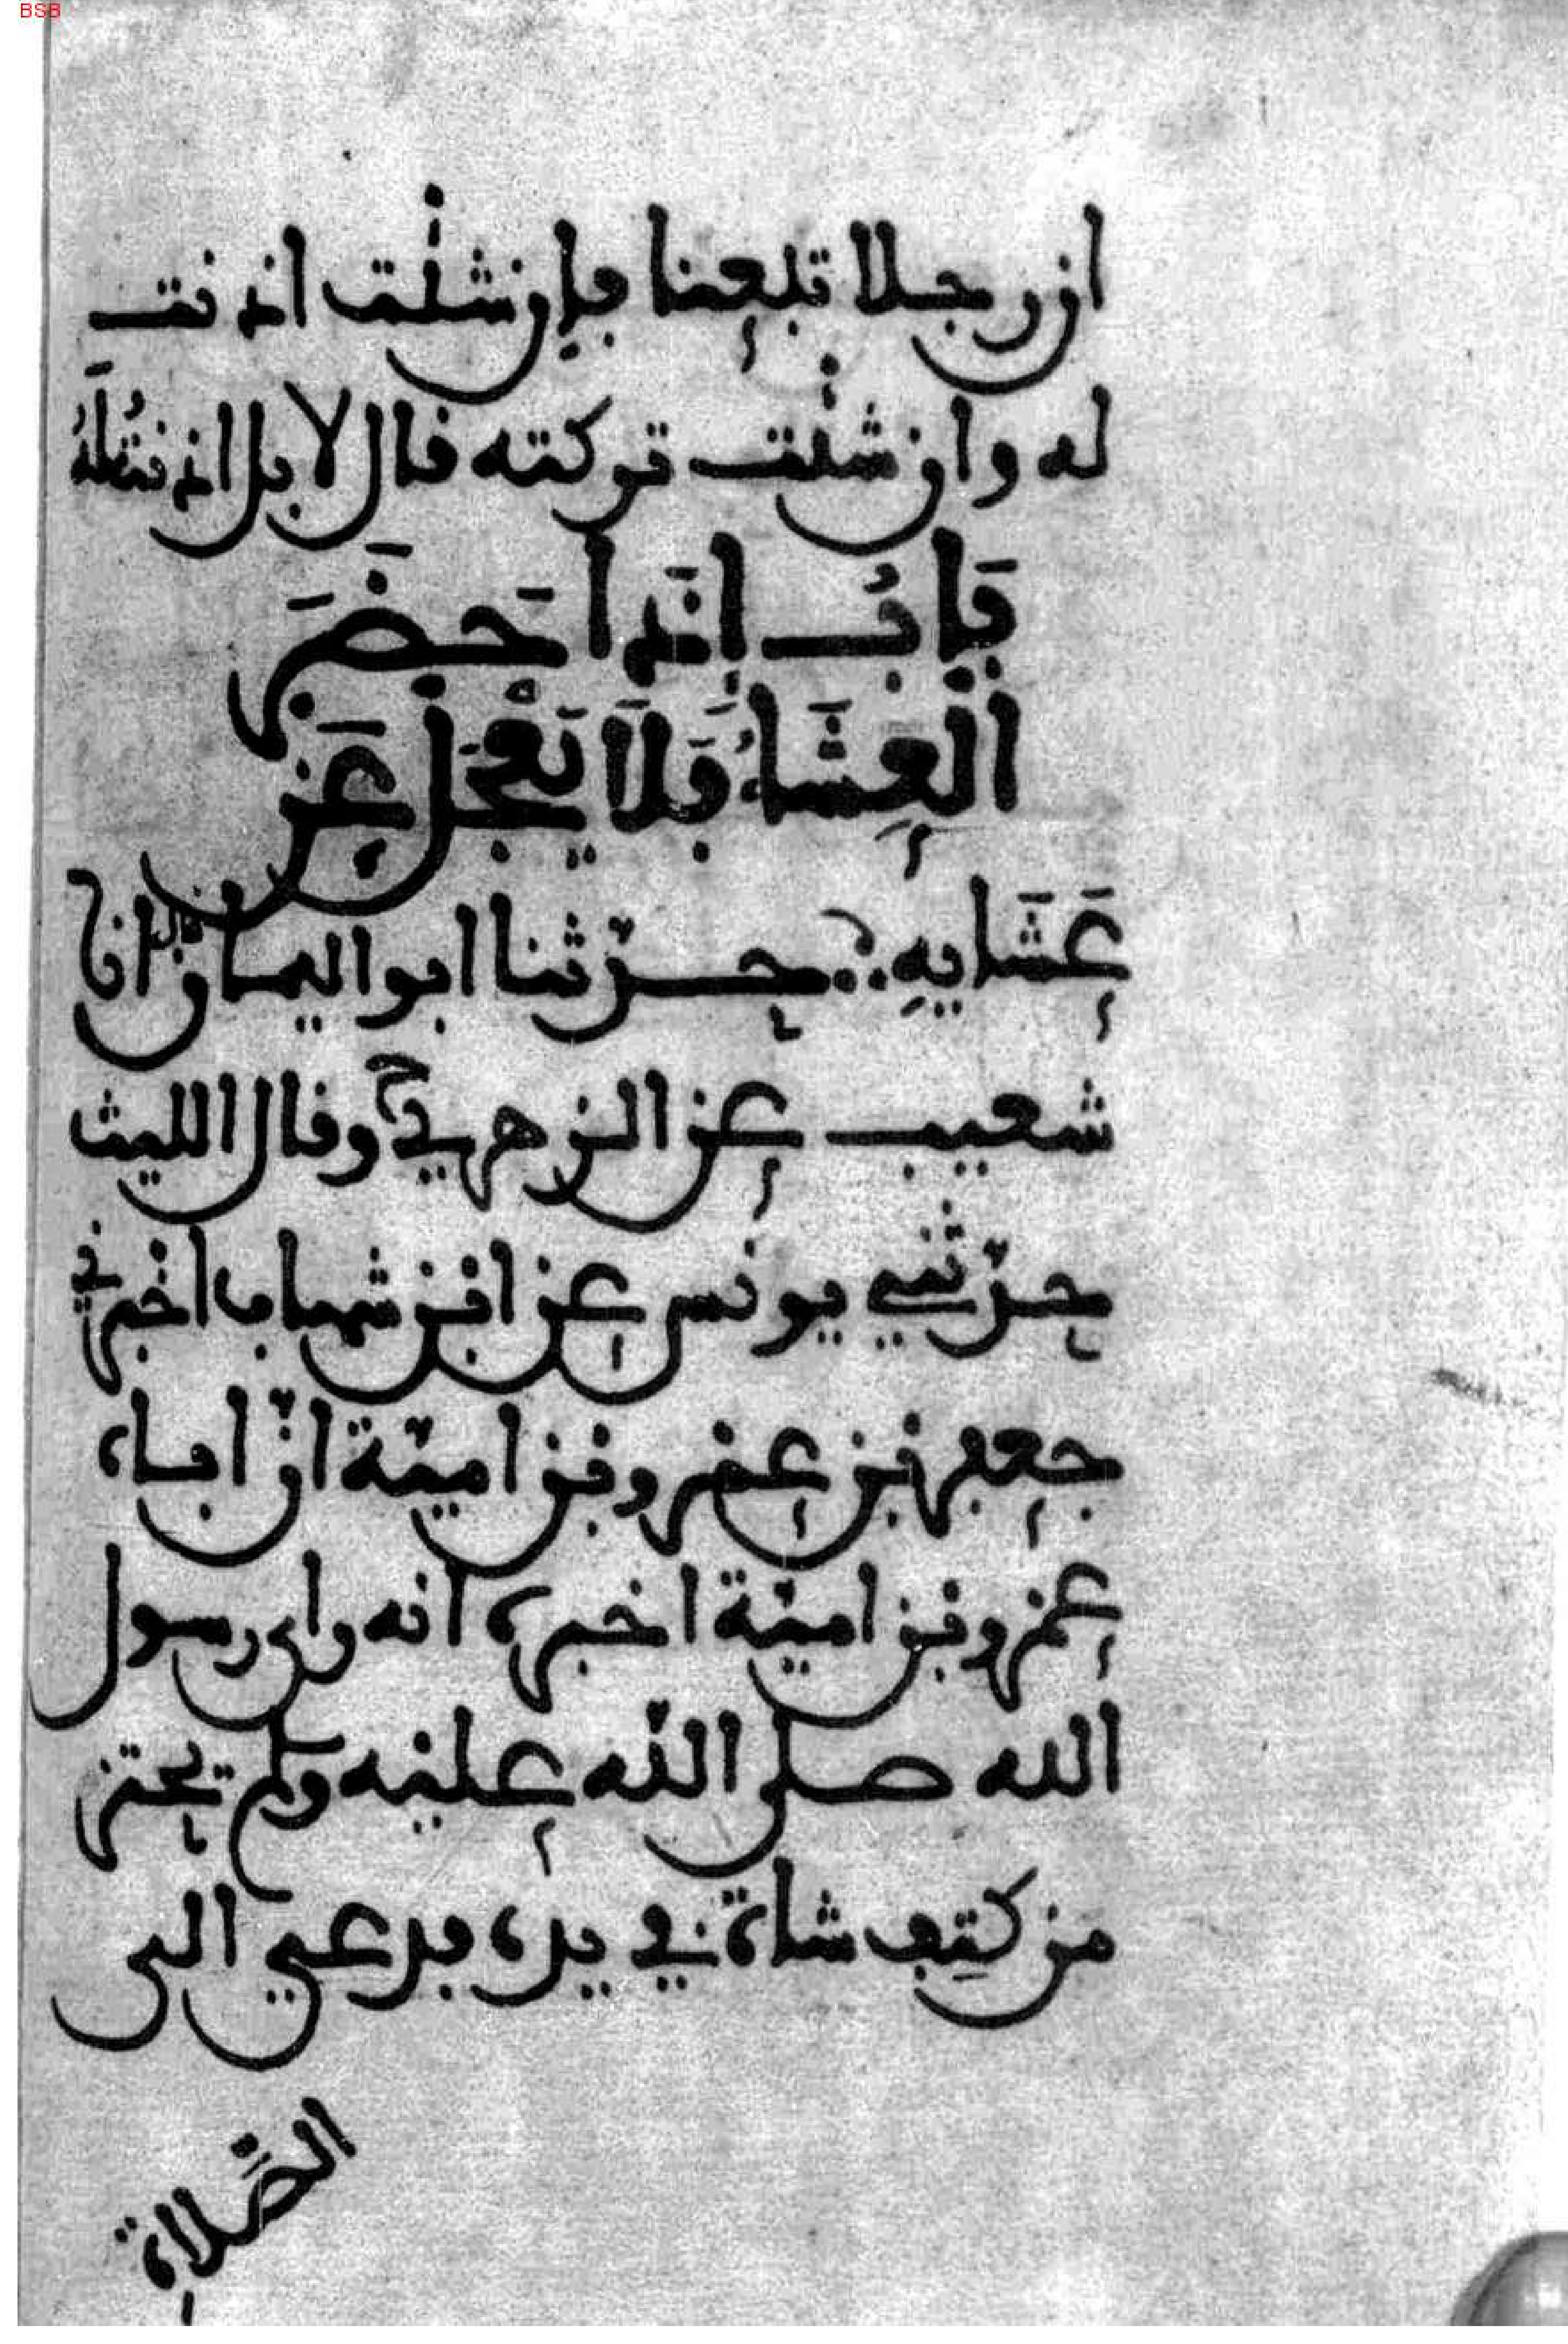 BSB
ان رجلا تبعنا فإن شئت اذنت
له وان شئت تركته قال لا بل اذنت لَهُ
بَابُ إِذَا حَضَرَ
الْعِشَاءُ فَلَا يَعْجَلْ عَنْ
عَشَايِهِ حدّثنا ابو اليمان قال انا
شعيب عن الزهري ح وقال الليث
حدّثني يونس عن ابن شهاب اخبرني
جعفر بن عمرو بن اميّة انّ اباه
عمرو بن اميّة اخبره انه راى رسول
الله صلى اللّه عليه وسلم يحتز
من كتِف شاة في يده فدعي الى
الصَّلاة